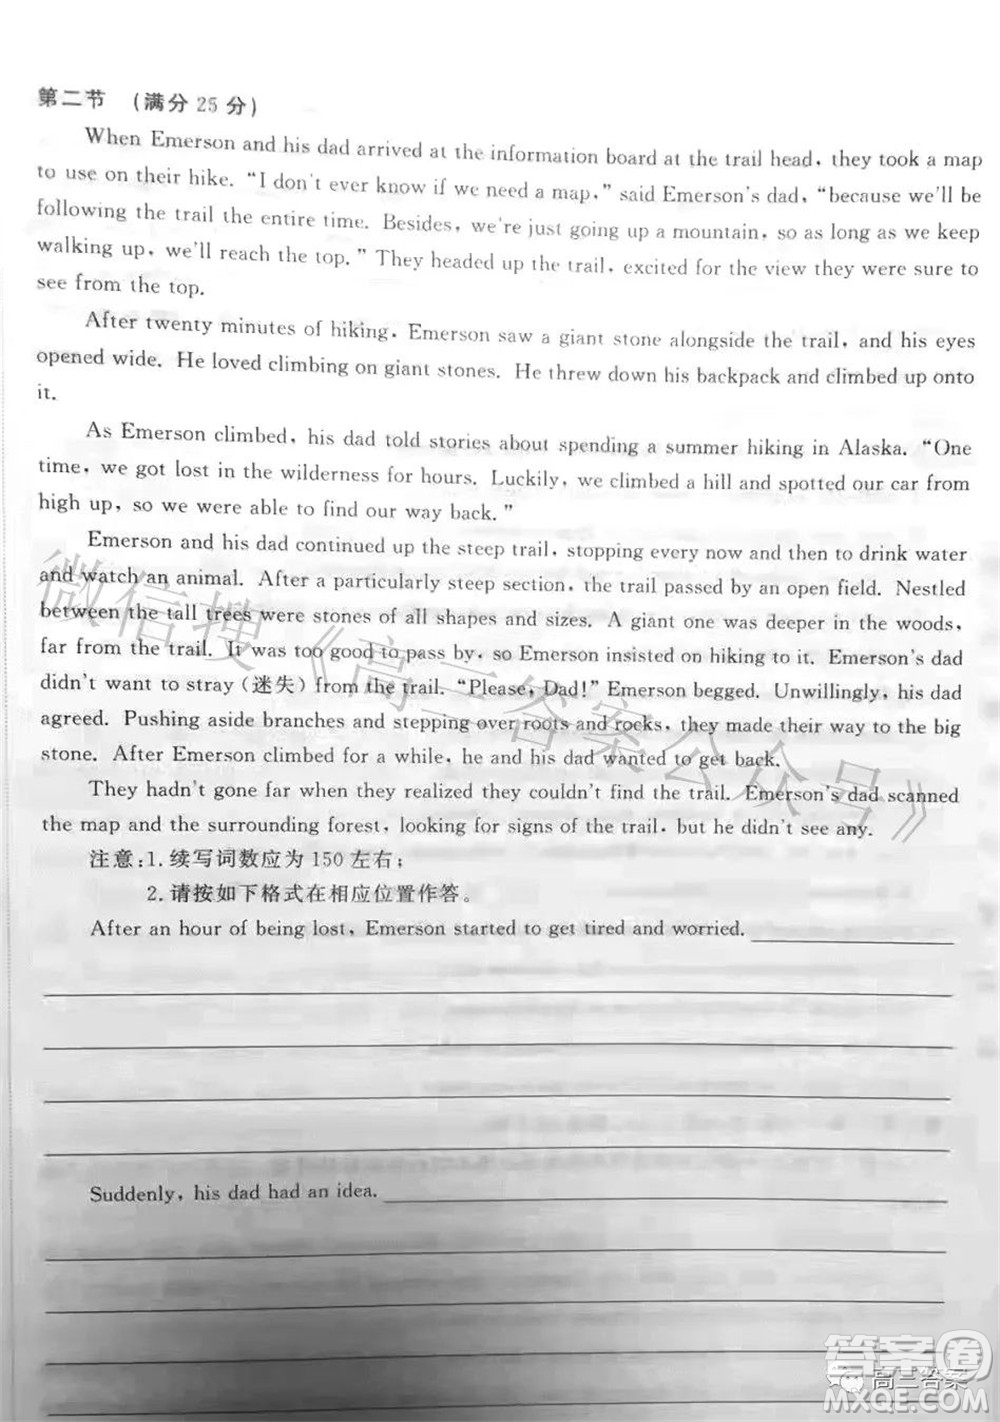 第二节 (满分25分)
When Emerson and his dad arrived at the information board at the trail head, they took a map
to use on their hike. "I don't ever know if we need a map," said Emerson's dad, "because we'll be
following the trail the entire time. Besides, we're just going up a mountain, so as long as we keep
walking up, we'll reach the top." They headed up the trail, excited for the view they were sure to
see from the top.
After twenty minutes of hiking, Emerson saw a giant stone alongside the trail, and his eyes
opened wide. He loved climbing on giant stones. He threw down his backpack and climbed up onto
it.
As Emerson climbed, his dad told stories about spending a summer hiking in Alaska. "One
time, we got lost in the wilderness for hours. Luckily, we climbed a hill and spotted our car from
high up, so we were able to find our way back."
Emerson and his dad continued up the steep trail, stopping every now and then to drink water
and watch an animal. After a particularly steep section, the trail passed by an open field. Nestled
between the tall trees were stones of all shapes and sizes. A giant one was deeper in the woods,
far from the trail. It was too good to pass by, so Emerson insisted on hiking to it. Emerson's dad
didn't want to stray (迷失) from the trail. "Please, Dad!" Emerson begged. Unwillingly, his dad
agreed. Pushing aside branches and stepping over roots and rocks, they made their way to the big
stone. After Emerson climbed for a while, he and his dad wanted to get back.
They hadn't gone far when they realized they couldn't find the trail. Emerson's dad scanned
the map and the surrounding forest, looking for signs of the trail, but he didn't see any.
注意:1.续写词数应为150左右;
2.请按如下格式在相应位置作答。
After an hour of being lost, Emerson started to get tired and worried.
Suddenly, his dad had an idea.
微信搜《高三答案公众号》
答案圈
高三答案
MXQE.COM